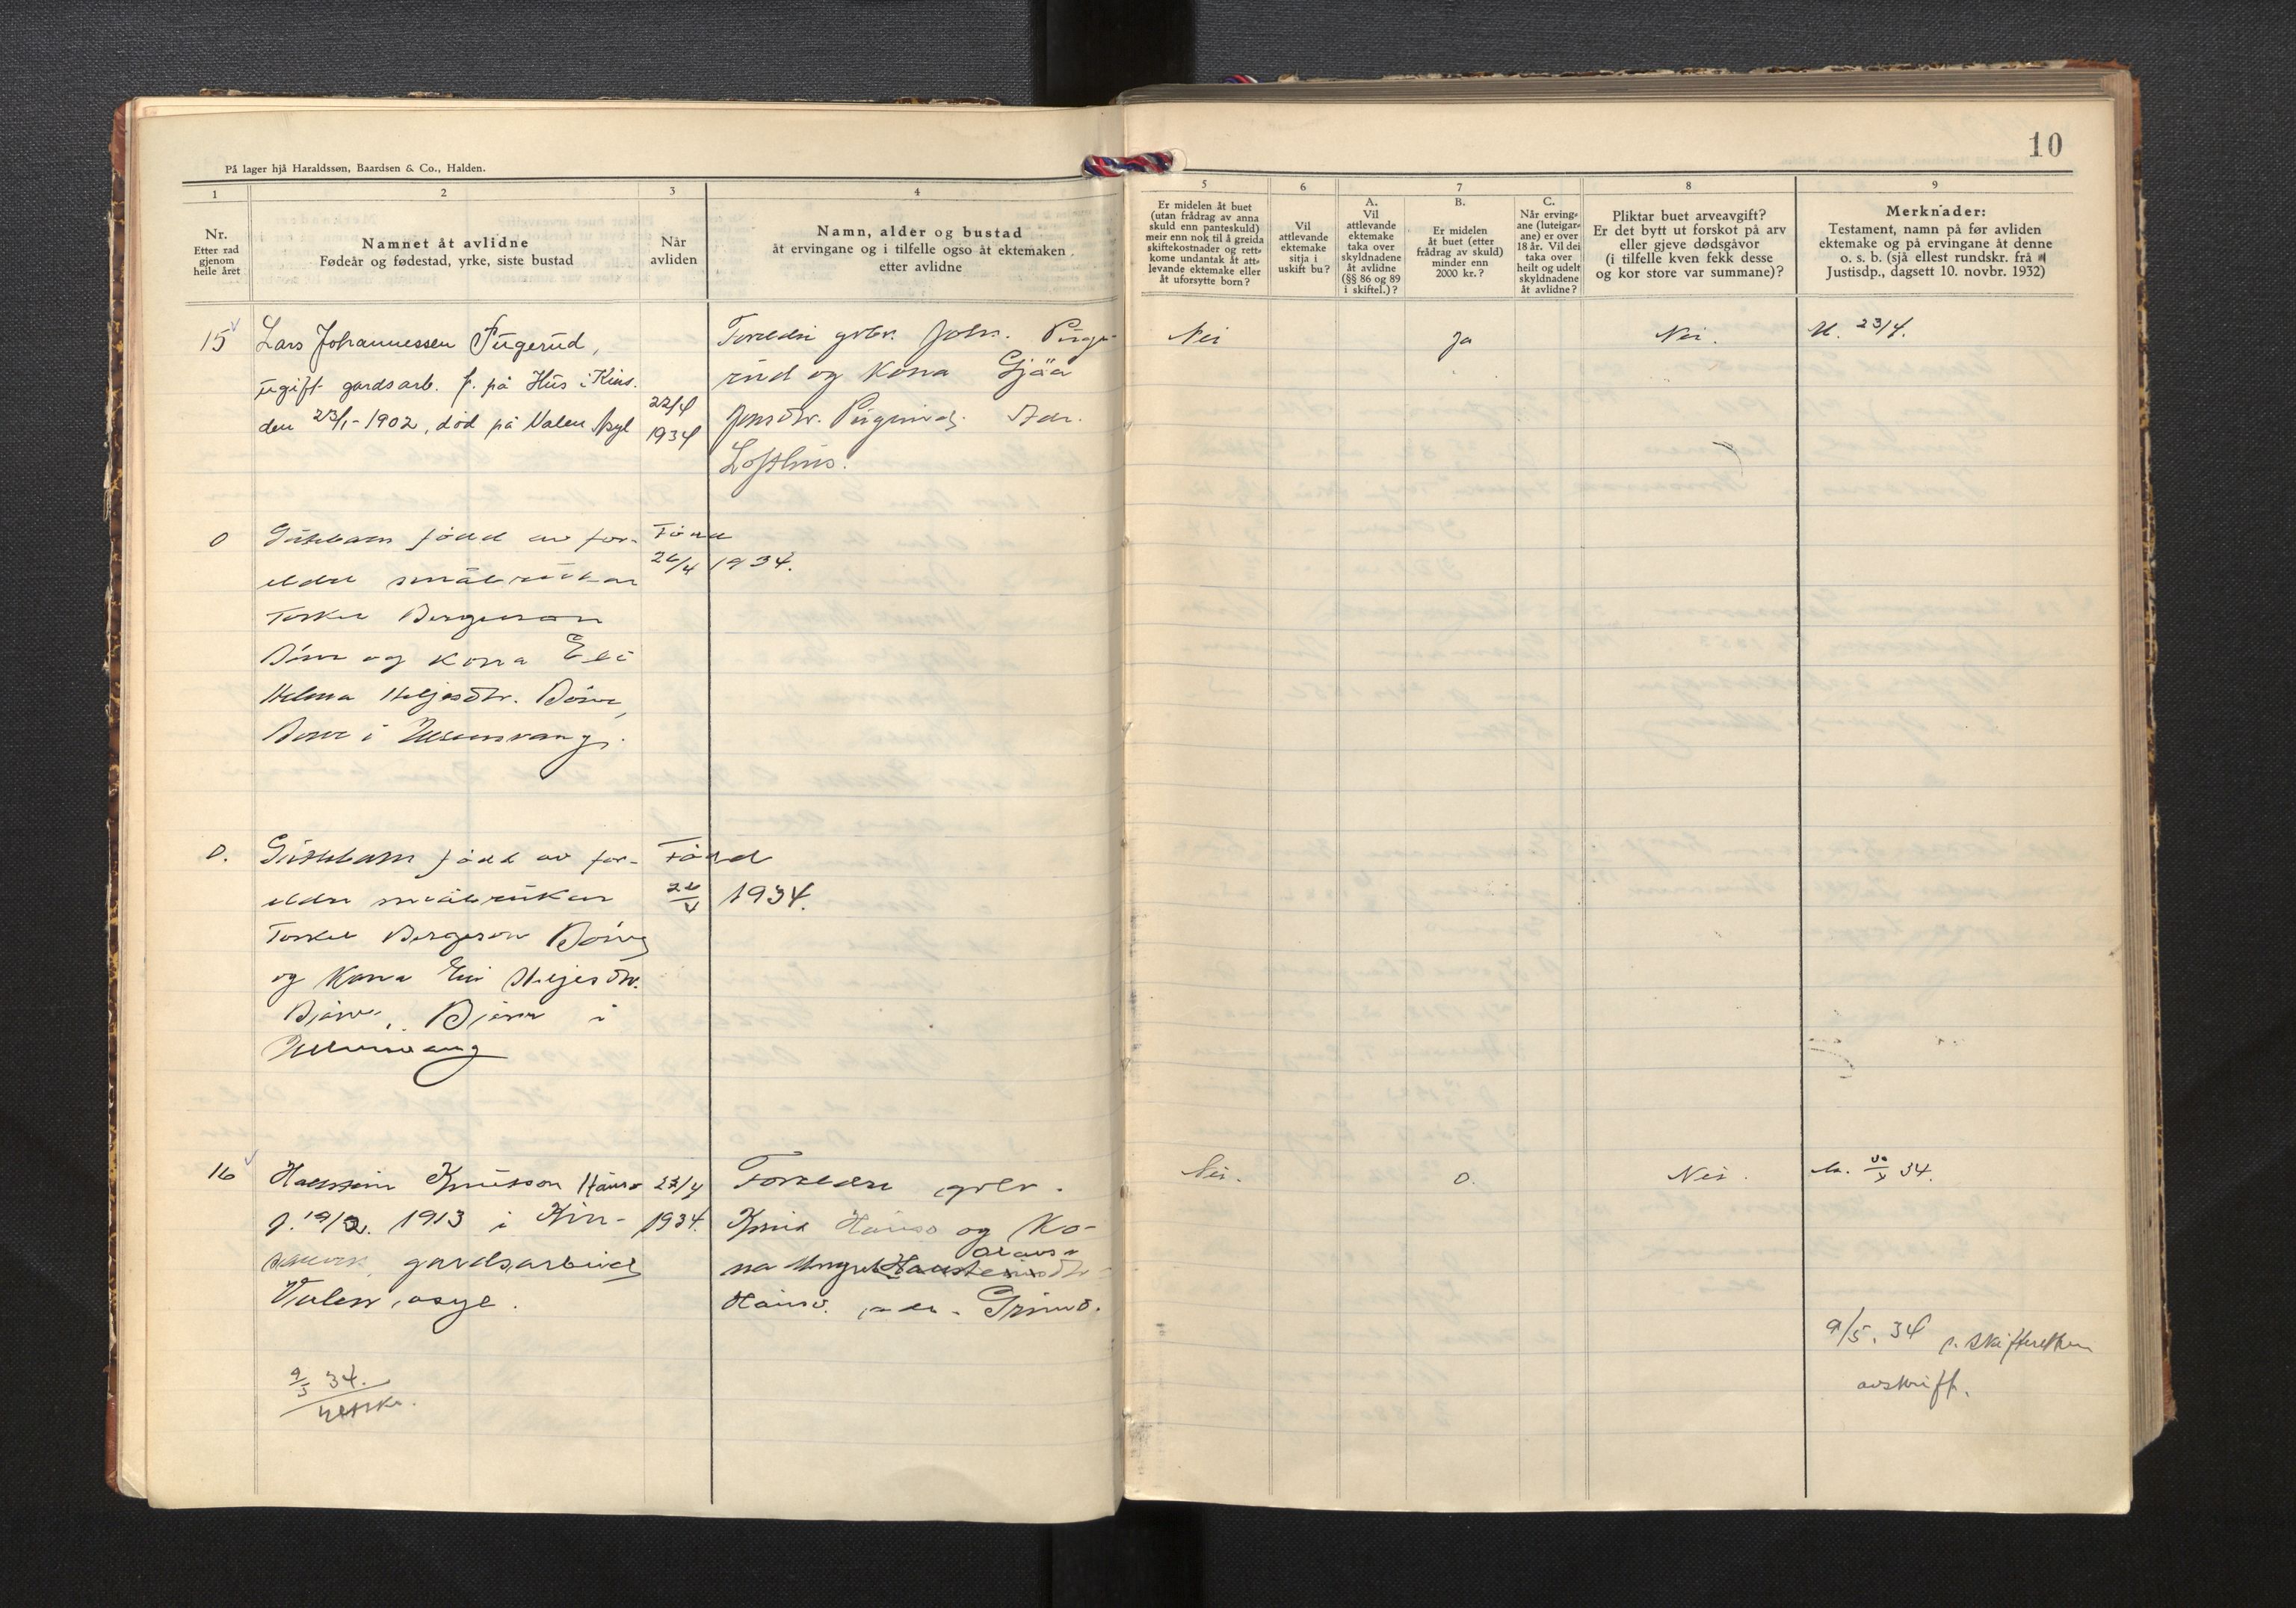 10
På lager hjå Haraldssøn, Baardsen & Co., Halden.
1
2
3
4
5
6
7
8
9
Nr.
Etter rad
gjenom
heile året
Namnet åt avlidne
Fødeår og fødestad, yrke, siste bustad
Når
avliden
Namn, alder og bustad
åt ervingane og i tilfelle ogso åt ektemaken
etter avlidne
Er midelen åt buet
(utan frådrag av anna
skuld enn panteskuld)
meir enn nok til å greida
skiftekostnader og rett-
kome undantak åt att-
levande ektemake eller
åt uforsytte born?
Vil
attlevande
ektemake
sitja i
uskift bu?
A.
Vil
attlevande
ektemake
taka over
skyldnadene
åt avlidne
(§§ 86 og 89
i skiftel.)?
B.
Er midelen
åt buet (etter
frådrag av skuld)
minder enn
2000 kr.?
C.
Når erving-
ane (luteigar-
ane) er over
18 år. Vil dei
taka over
heilt og udelt
skyldnadene
åt avlidne?
Pliktar buet arveavgift?
Er det bytt ut forskot på arv
eller gjeve dødsgåvor
(i tilfelle kven fekk desse
og kor store var summane)?
Merknader:
Testament, namn på før avliden
ektemake og på ervingane åt denne
o. s. b. (sjå ellest rundskr. frå
Justisdp., dagsett 10. novbr. 1932)
15
Lars Johannessen
ugift gardsarb. f. på Hus i Kins.
den 23/1-1902, død på Valen Asyl
22/4
1934
Foreldri grbr. Joh.
og kona Gjøa
Jonsdtr. Adr.
Lofthus.
Nei
Ja
Nei.
M. 23/4.
0
Gutebarn fødd av for-
eldre småbrukar
Torkel Bergeson
og kona Eli
Helena Heljesdtr. Børve,
Børve i Ullensvang.
Fødd
26/4 1934.
0.
Gutebarn fødd av for-
eldre småbrukar
Torkel Bergeson Børve
og kona Eli Heljesdtr.
i
Ullensvang
Fødd
26/4 1934.
16
Knutson Hauso
f. 19/2. 1913 i Kin-
sarvik, gardsarbeid
Valen, asyl.
23/4
1934.
Foreldri grbr.
Knut Hauso og ko-
na
Hauso. adr. Grimo.
Nei.
0.
Nei.
34.
9/5 34.
9/5. 34 s. skifteretten
avskrift.